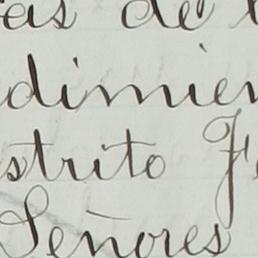 as de
dimien
strito F
Señores